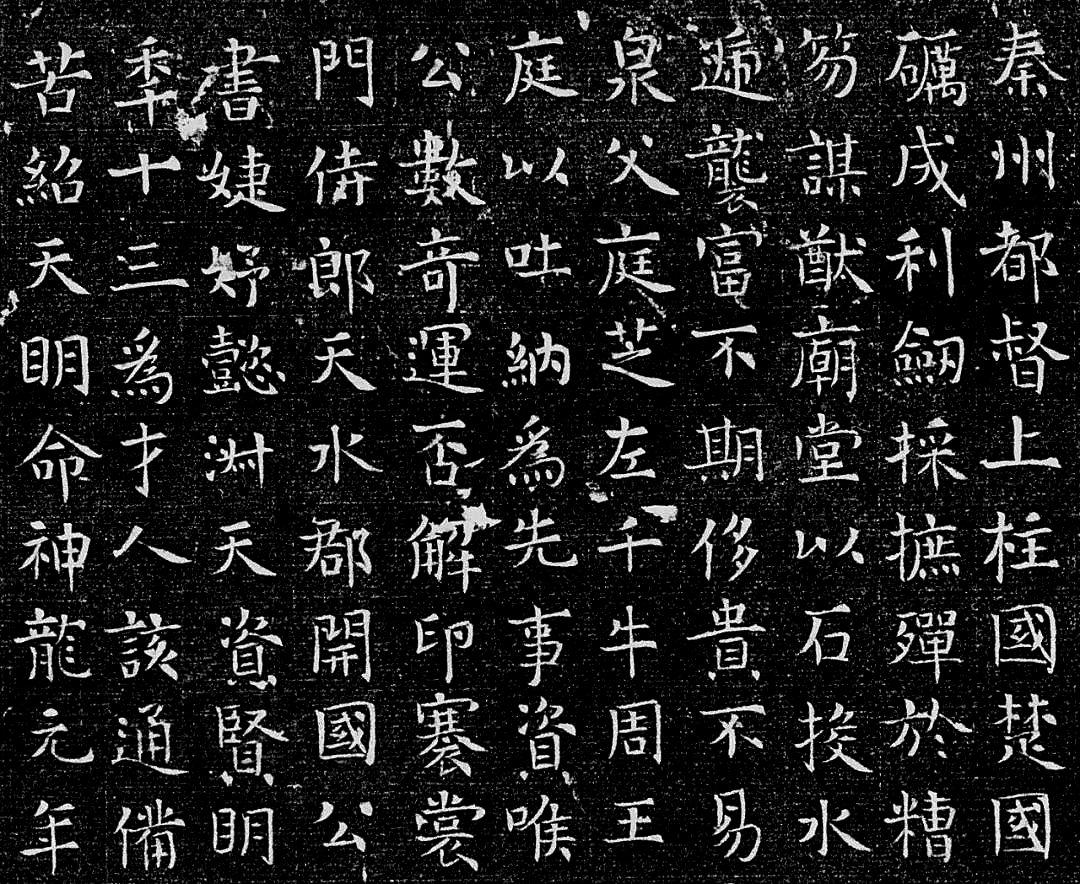 秦州都督上柱國楚國
礪成利劒採摭殫於糟
笏謀猷廟堂以石投水
遞襲富不期侈貴不易
泉父庭芝左千牛周王
庭以吐納爲先事資喉
公數奇運否解印褰裳
門侍郎天水郡開國公
書婕妤懿淑天資賢眀
秊十三爲才人該通備
苦紹天眀命神龍元年